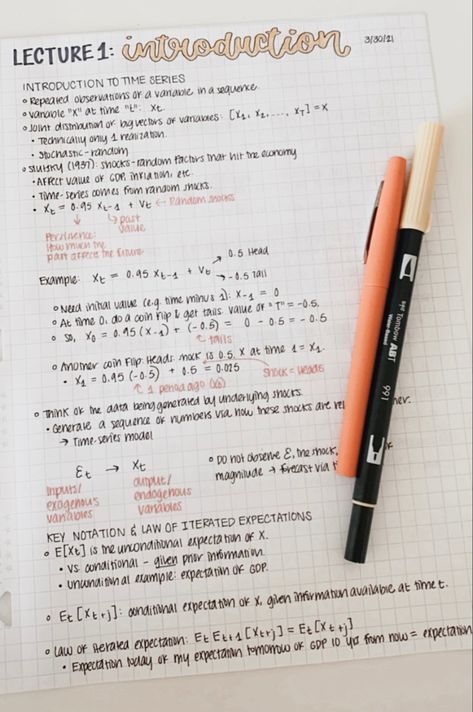 LECTURE 1: introduction
3/30/21
INTRODUCTION TO TIME SERIES
Repeated observations of a variable in a sequence.
variable "X" at time "t": Xt.
Joint distribution of big vectors of variables: [X1, X2, ..., XT] = X
Technically only 1 realization.
Stochastic-random
Slutsky (1937): shocks-random factors that hit the economy
Affect value of GDP, inflation, etc.
Time-series comes from random shocks.
Xt = 0.95 Xt-1 + Vt ← Random shocks
past value
Persistence:
How much the
past affects the future
Example: Xt = 0.95 Xt-1 + Vt
0.5 Head
-0.5 Tail
Need initial value (e.g. time minus 1): X-1 = 0
At time 0, do a coin flip & get tails. value of "T" = -0.5.
so, X0 = 0.95 (X-1) + (-0.5) = 0 - 0.5 = -0.5
↑ tails
Another coin flip: Heads. shock is 0.5. X at time 1 = X1.
X1 = 0.95 (-0.5) + 0.5 = 0.025
↑ 1 period ago (X0)
shock = Heads
Think of the data being generated by underlying shocks.
Generate a sequence of numbers via how these shocks are
→ Time-series model
Et → Xt
inputs/
exogenous
variables
output/
endogenous
variables
Do not observe E, the shock,
magnitude → forecast via
KEY NOTATION & LAW OF ITERATED EXPECTATIONS
E[Xt] is the unconditional expectation of X.
vs. conditional - given prior information.
Unconditional example: expectation of GDP.
Et [Xt+j]: conditional expectation of X, given information available at time t.
Law of iterated expectation: Et Et+1 [Xt+j] = Et [Xt+j]
Expectation today of my expectation tomorrow of GDP 10 yrs from now = expectation
Tombow ABT
991